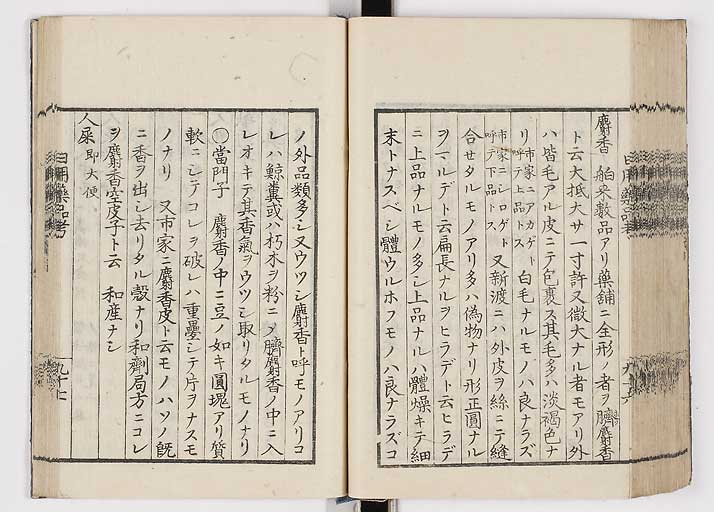 麝香 舶来數品アリ藥舖ニ全形ノ者ヲ臍麝香
ト云大抵大サ一寸許又微大ナル者モアリ外
ハ皆毛アル皮ニテ包裹ス其毛多ハ淡褐色ナ
リ 市家ニアカゲト呼テ上品トス 白毛ナルモノハ良ナラズ
市家ニシロゲト呼テ下品トス 又新渡ニハ外皮ヲ絲ニテ縫
合セタルモノアリ多ハ偽物ナリ形正圓ナル
ヲマルデト云扁長ナルヲヒラデト云ヒラデ
ニ上品ナルモノ多シ上品ナルハ體燥キテ細
末トナスベシ體ウルホフモノハ良ナラズコ
ノ外品類多シ又ウツシ麝香ト呼モノアリコ
レハ鯨糞或ハ朽木ヲ粉ニメ臍麝香ノ中ニ入
レオキテ其香氣ヲウツシ取リタルモノナリ
○當門子 麝香ノ中ニ豆ノ如キ圓塊アリ質
軟ニシテコレヲ破レハ重疊シテ片ヲナスモ
ノナリ 又市家ニ麝香皮ト云モノハソノ既
ニ香ヲ出シ去リタル殼ナリ和劑局方ニコレ
ヲ麝香空皮子ト云 和産ナシ
人屎 即大便
日用藥品考
九十七